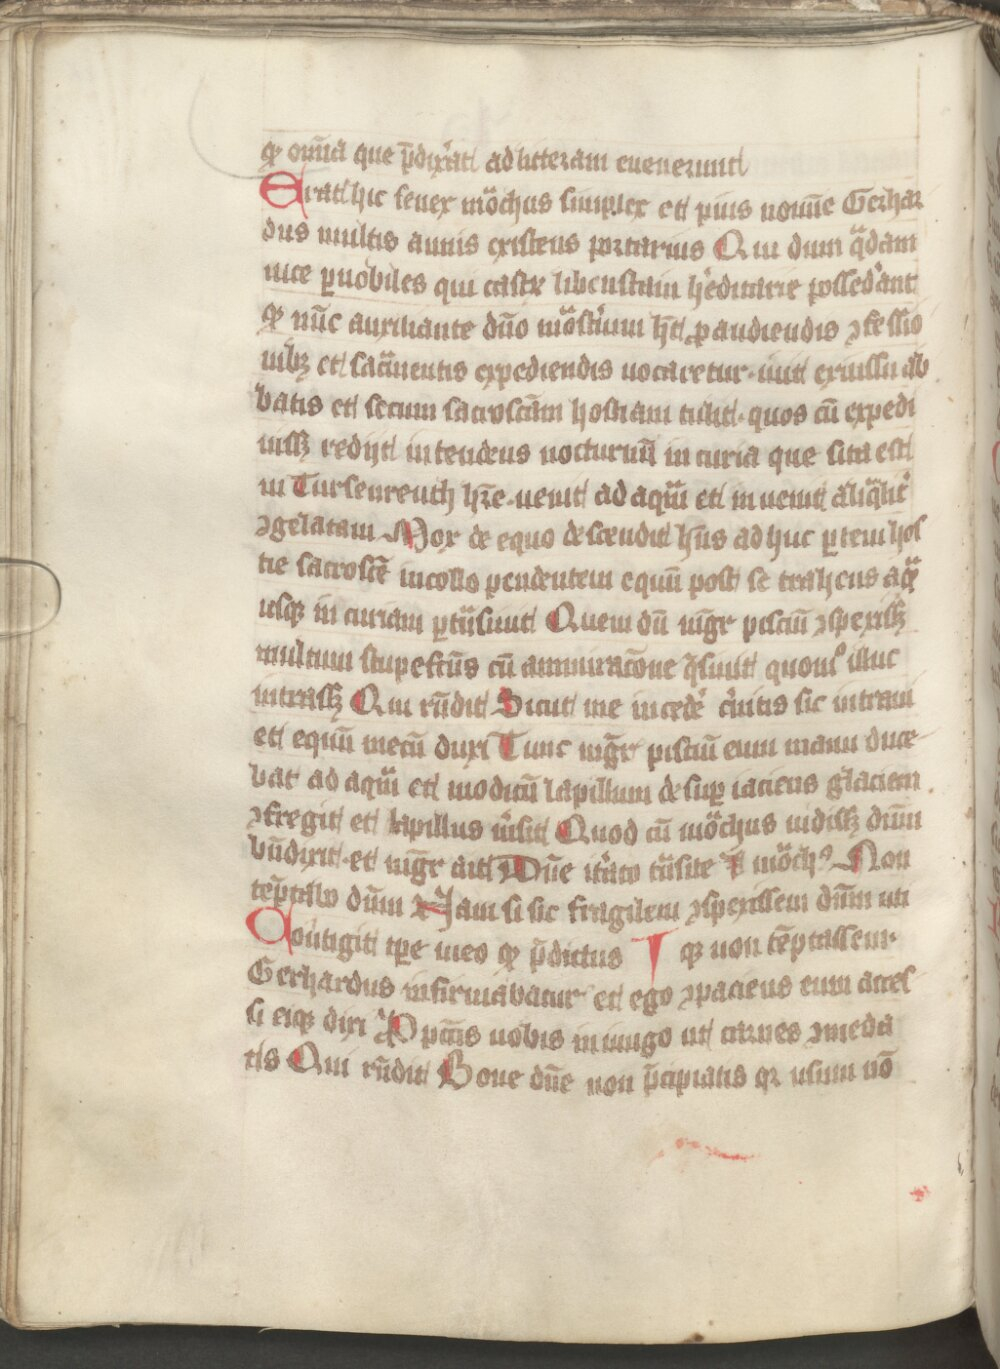 qꝫ om̄ia que p̄dixᵉat ad litteram euenerunt
Erat hic senex mōchus simplex et pius noīe Gerhar
dus multis annis existens portarius Qui dum q̄dam
uice ꝑ nobiles qui castꝝ libenstain hᵉeditarie possedᵉant
qꝫ nūc auxiliante dn̄o mōstᵉium hꝫ ꝓ audiendis ꝯfessio
nibꝫ et sacᵃmentis expediendis uocaretur iuit ex iussu ab
batis et secum sacroscām hostiam tulit quos cū expedi
uissꝫ redijt intendens nocturnū in curia que sita est
in Tursenreuth hr̄e uenit ad aquā et inuenit aliqᵃlitᵉ
ꝯgelatam Mox de equo descendit hn̄s adhuc ꝑtem hos
tie sacroscē in collo pendentem equū post se trahens aqᵃ
usqꝫ in curiam ꝑtᵃsiuit Quem dū mgr̄ pisciū ꝯspexissꝫ
multum stupefcūs cū ammiracōne q̄siuit quomᵒ illuc
intrassꝫ Qui rn̄dit Sicut me incedᵉe cᵉnitis sic intraui
et equū mecū duxi Tunc mgr̄ pisciū eum manu duce
bat ad aquā et modicū lapillum desuꝑ iaciens glaciem
ꝯfregit et lapillus mᵉsit Quod cū mōchus uidissꝫ dūm
bn̄dixit et mgr̄ ait Dn̄e itᵉato tᵃnsite Et mōchꝰ Non
temptabo dn̄m Nam si sic fragilem ꝯspexissem dn̄m uti
Contigit tꝑe meo qꝫ p̄dictus qꝫ non tēptassem
Gerhardus infirmabatur et ego ꝯpaciens eum acces
si eiqꝫ dixi P pcīs uobis iniungo ut carnes ꝯmeda
tis Qui rn̄dit Bone dn̄e non p̄cipiatis qꝛ usum nō